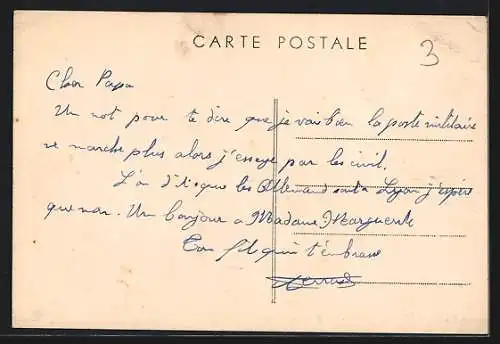 CARTE POSTALE
3
Cher Papa
Un mot pour te dire que je vais bien la poste militaire
ne marche plus alors j'essaye par les civil.
L'on dit que les Allemand sont a Lyon j'espère
que non. Un bonjour a Madame Marguerite
Ton fils qui t'embrasse